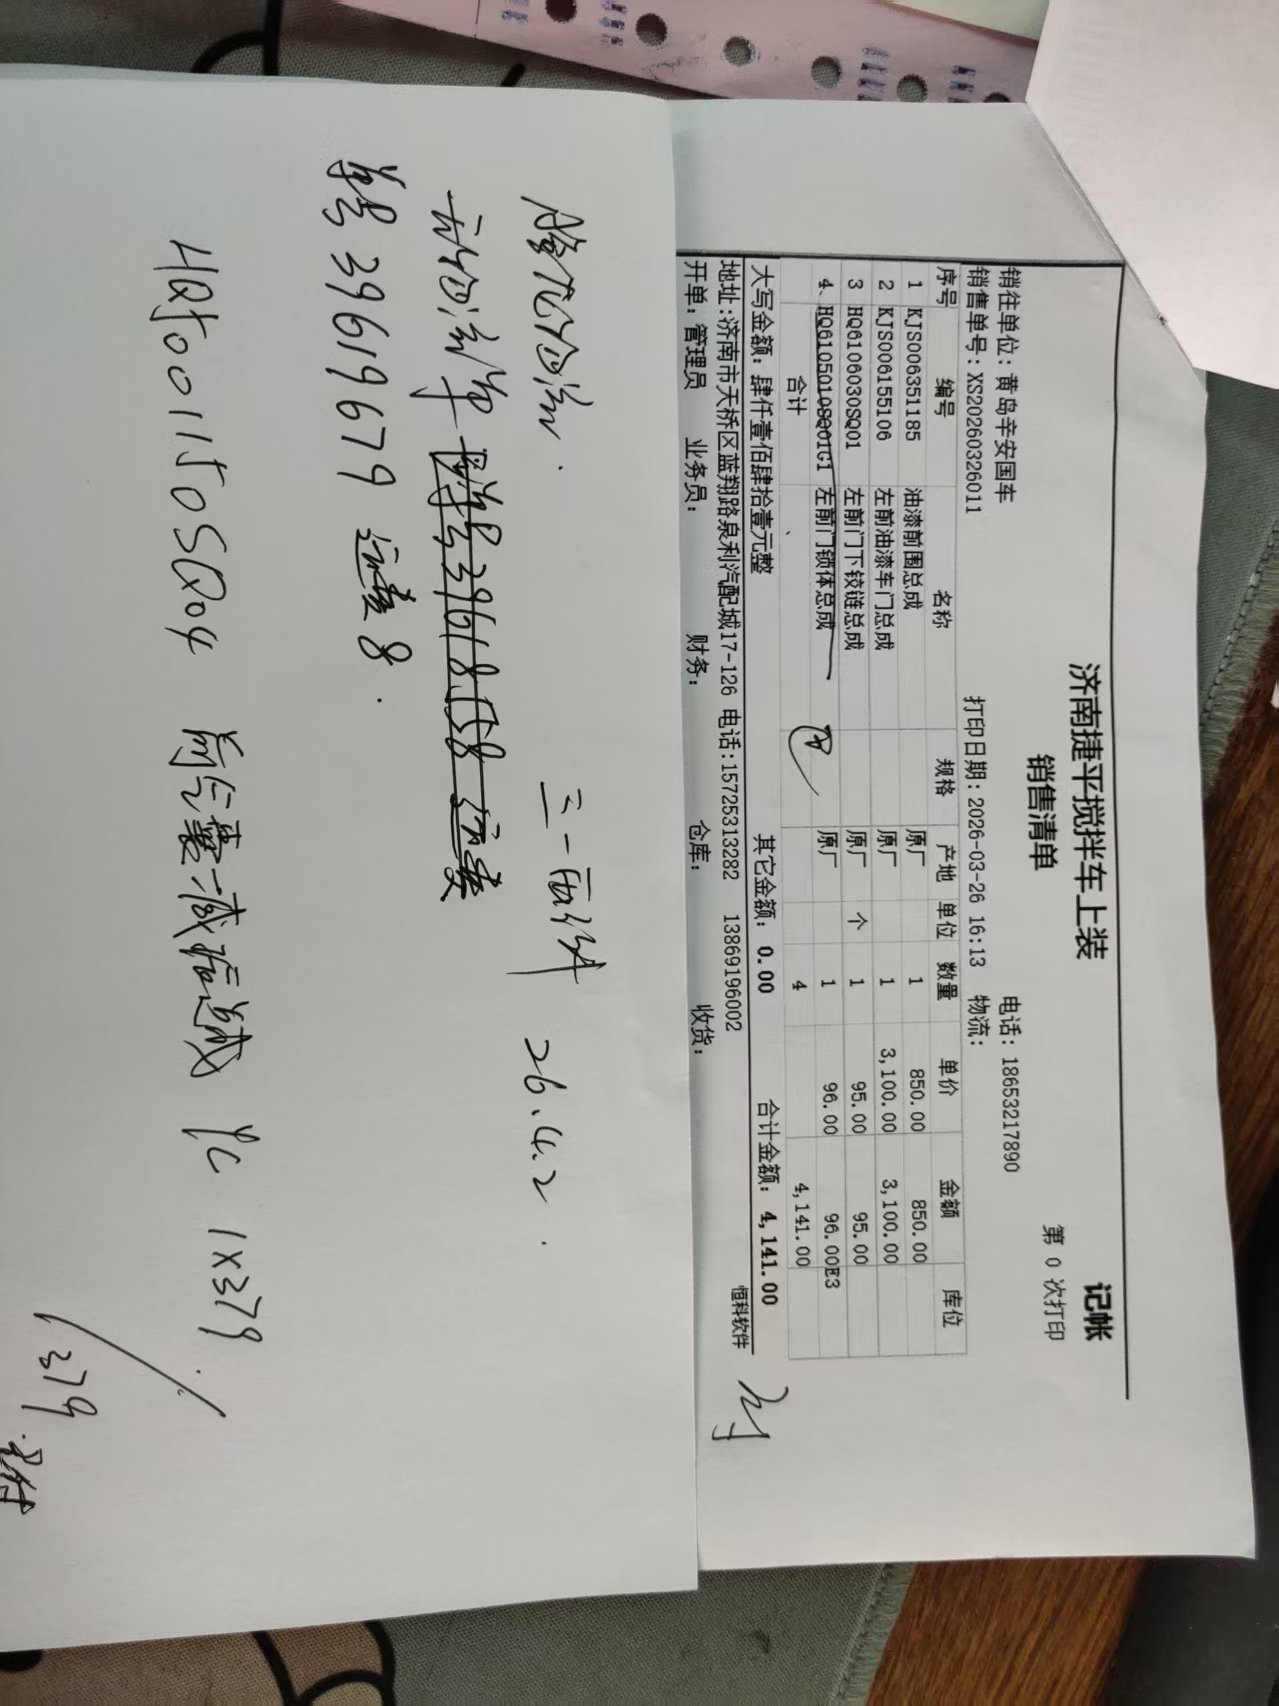 济南捷平搅拌车上装
记帐
销售清单
第 0 次打印
销往单位：黄岛辛安国车 电话：18653217890
销售单号：XS20260326011 打印日期：2026-03-26 16:13 物流：
序号 编号 名称 规格 产地 单位 数量 单价 金额 库位
1 KJS006351185 油漆前围总成 原厂 1 850.00 850.00
2 KJS006155106 左前油漆车门总成 原厂 1 3,100.00 3,100.00
3 HQ6106030SQ01 左前门下铰链总成 原厂 个 1 95.00 95.00
4 HQ6105010SQ01G1 左前门锁体总成 原厂 1 96.00 96.00E3
合计 4 4,141.00
大写金额：肆仟壹佰肆拾壹元整 其它金额：0.00 合计金额：4,141.00
地址:济南市天桥区蓝翔路泉利汽配城17-126 电话:15725313282 13869196002 恒科软件
开单：管理员 业务员： 财务： 仓库： 收货：
三一配件 26.4.2
39618558 运费
单号 39619679 运费 8.
HQ5001150SQ04 前气囊减振总成 PC 1×379
379.